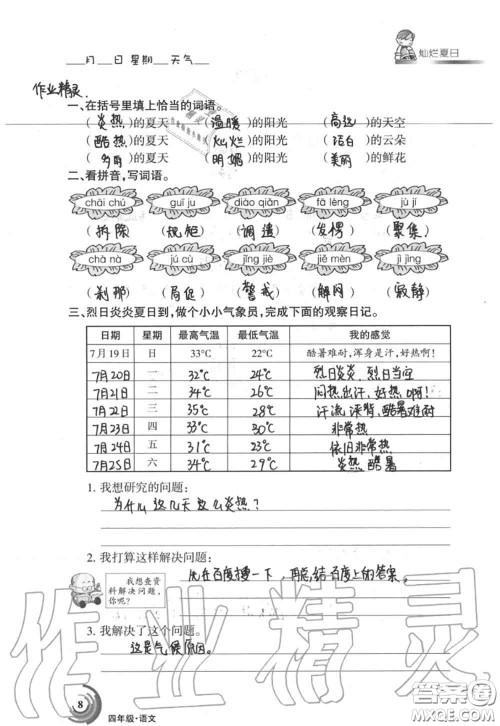 灿烂夏日
___月___日 星期___天气___
作业精灵.
一、在括号里填上恰当的词语。
(炎热)的夏天 (温暖)的阳光 (高远)的天空
(酷热)的夏天 (灿烂)的阳光 (洁白)的云朵
(多雨)的夏天 (明媚)的阳光 (美丽)的鲜花
二、看拼音,写词语。
chāi chú guī ju diào qiǎn fā lèng jù jí
(拆除) (规矩) (调遣) (发愣) (聚集)
chà nà jú cù jǐng jiè jiě mèn jì jìng
(刹那) (局促) (警戒) (解闷) (寂静)
三、烈日炎炎夏日到,做个小小气象员,完成下面的观察日记。
日期 星期 最高气温 最低气温 我的感觉
7月19日 日 33℃ 22℃ 酷暑难耐,浑身是汗,好热啊!
7月20日 一 32℃ 24℃ 烈日炎炎,烈日当空
7月21日 二 34℃ 26℃ 闷热出汗,好热啊!
7月22日 三 35℃ 28℃ 汗流浃背,酷暑难耐
7月23日 四 33℃ 30℃ 非常热
7月24日 五 31℃ 23℃ 依旧非常热
7月25日 六 34℃ 29℃ 炎热酷暑
1. 我想研究的问题:
为什么这几天这么炎热?
2. 我打算这样解决问题:
我想查资料解决问题,你呢?
先在百度搜一下,再总结百度上的答案.
3. 我解决了这个问题。
这是气候原因.
作业精灵
8
四年级·语文
答案圈
MXQE.COM